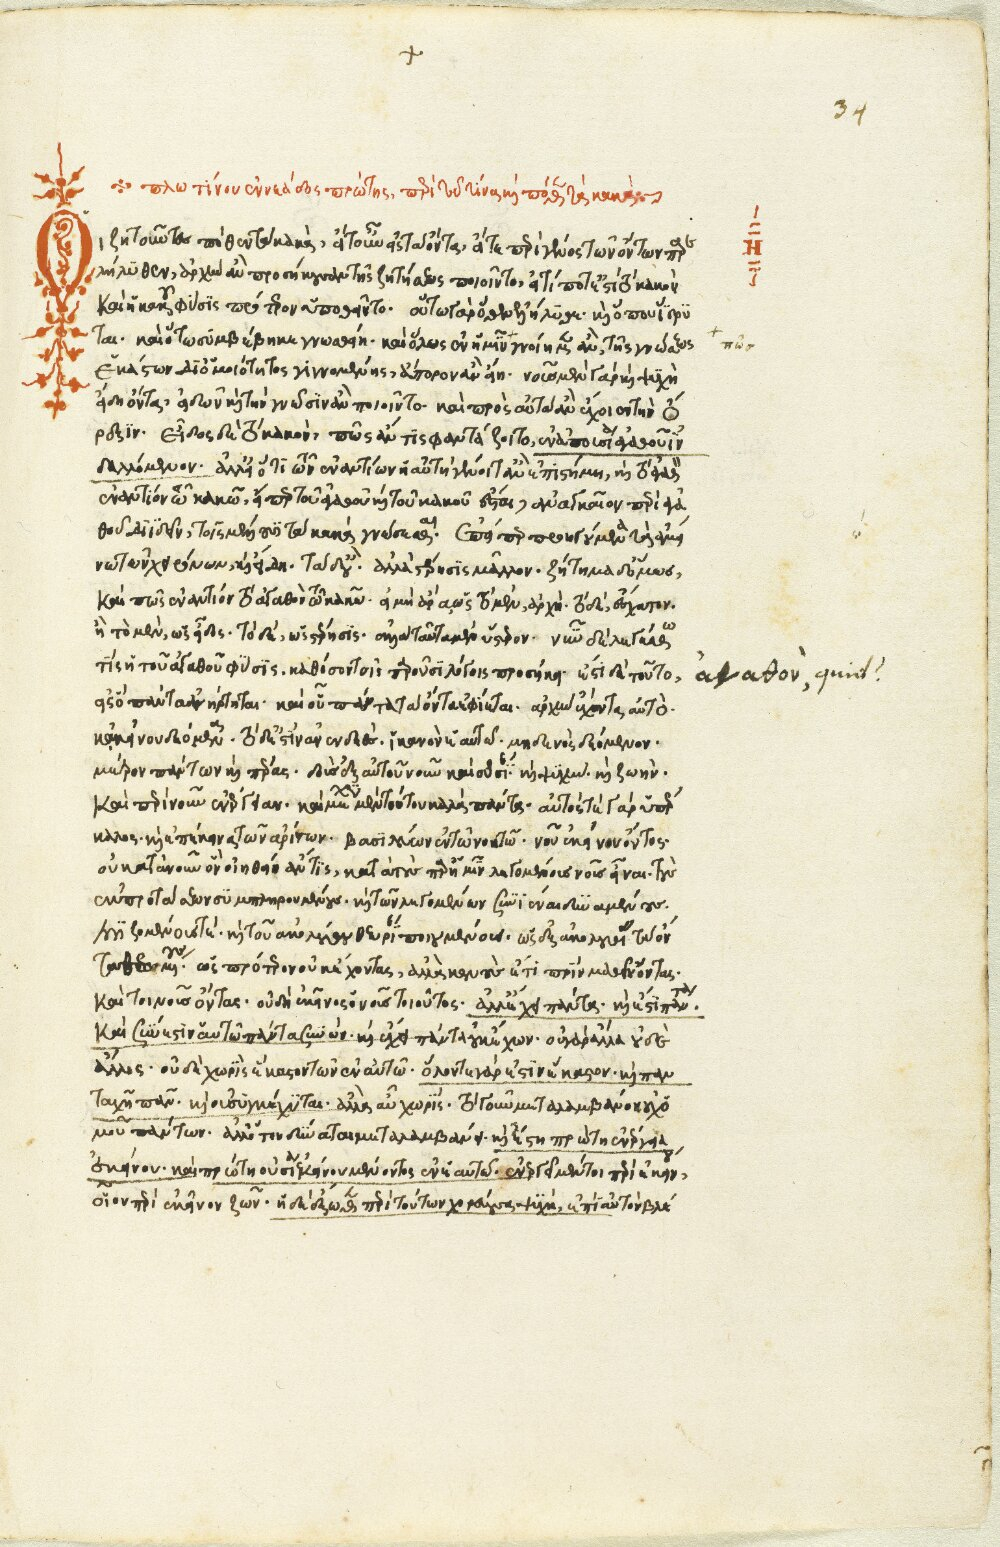 +
34
πλωτίνου ἐννεάδος πρώτης, περὶ τοῦ τίνα καὶ πόθεν τὰ κακά
Η
Οἱ ζητοῦντες πόθεν τὰ κακὰ, εἴτ' οὖν εἰς τὰ ὄντα, εἴτε περὶ γένος τῶν ὄντων παρε
λήλυθεν, ἀρχὴν ἂν προσήκουσαν τῆς ζητήσεως ποιοῖντο, εἰ τί ποτ' ἐστὶ τὸ κακὸν
καὶ ἡ κακοῦ φύσις πρότερον ὑποθεῖντο. οὕτω γὰρ ὅθεν ἐλήλυθε. καὶ ὅπου ἵδρυ
ται. καὶ ὅτω συμβέβηκε γνωσθείη. καὶ ὅλως εἰ ἔστιν
+ πῶς
δι' ὁμοιότητος γιγνομένης, ἄπορον ἂν εἴη. νοῦς μὲν γὰρ καὶ ψυχὴ
εἴδη ὄντα, εἰδῶν καὶ τὴν γνῶσιν ἂν ποιοῖντο. καὶ πρὸς αὐτὰ ἂν ἔχοιεν τὴν ὄ
ρεξιν. εἶδος δὲ τὸ κακὸν, πῶς ἄν τις φαντάζοιτο, ἐν ἀπουσίᾳ ἀγαθοῦ ἰν
δαλλόμενον. ἀλλ' εἰ ὅτι τῶν ἐναντίων ἡ αὐτὴ γένοιτ' ἂν ἐπιστήμη, καὶ τῷ ἀγαθῷ
ἐναντίον τὸ κακὸν, ἥπερ τοῦ ἀγαθοῦ καὶ τοῦ κακοῦ ἔσται, ἀναγκαῖον περὶ ἀγα
θοῦ διιδεῖν, τοῖς μέλλουσι τὰ κακὰ γνώσεσθαι. ἐπείπερ προηγούμενα τὰ ἀμεί
νω τῶν χειρόνων, καὶ εἴδη. τὰ δ' οὔ. ἀλλὰ στέρησις μᾶλλον. ζήτημα δ' ὅμως,
καὶ πῶς ἐναντίον τὸ ἀγαθὸν τῷ κακῷ. εἰ μὴ ἄρα ὡς τὸ μὲν, ἀρχὴ. τὸ δὲ, ἔσχατον.
ἢ τὸ μὲν, ὡς εἶδος. τὸ δὲ, ὡς στέρησις. ἀλλὰ ταῦτα μὲν ὕστερον. νῦν δὲ λεγέσθω
τίς ἡ τοῦ ἀγαθοῦ φύσις, καθόσον τοῖς παροῦσι λόγοις προσήκει. ἔστι δὲ τοῦτο,
ἀγαθὸν, quid?
εἰς ὃ πάντα ἀνήρτηται. καὶ οὗ πάντα τὰ ὄντα ἐφίεται. ἀρχὴν ἔχοντα αὐτὸ.
κἀκείνου δεόμενα. τὸ δ' ἐστὶν ἀνενδεὲς. ἱκανὸν ἑαυτῷ. μηδενὸς δεόμενον.
μέτρον πάντων καὶ πέρας. δοὺς ἐξ αὐτοῦ νοῦν καὶ οὐσίαν. καὶ ψυχὴν. καὶ ζωὴν.
καὶ περὶ νοῦν ἐνέργειαν. καὶ μέχρι μὲν τούτου καλὰ πάντα. αὐτός τε γὰρ ὑπέρ
καλος. καὶ ἐπέκεινα τῶν ἀρίστων. βασιλεύων ἐν τῷ νοητῷ. νοῦ ἐκείνου ὄντος.
οὐ κατὰ νοῦν ὃν οἰηθείη ἄν τις, κατὰ τοὺς παρ' ἡμῖν λεγομένους νοῦς εἶναι. τοὺς
ἐκ προτάσεων συμπληρουμένους. καὶ τῶν λεγομένων συνιέναι δυναμένους.
λογιζομένους τε. καὶ τοῦ ἀκολούθου θεωρίαν ποιουμένους. ὡς ἐξ ἀκολουθίας τὰ ὄν
τα θεωμένους. ὡς πρότερον οὐκ ἔχοντας, ἀλλὰ κενοὺς ἔτι πρὶν μαθεῖν ὄντας.
καίτοι νοῦς ὄντας. οὐ δὴ ἐκεῖνος ὁ νοῦς τοιοῦτος. ἀλλ' ἔχει πάντα. καὶ ἔστι πάντα.
καὶ σύνεστιν αὐτῷ πάντα συνών. καὶ ἔχει πάντα οὐκ ἔχων. οὐ γὰρ ἄλλα ὁ δὲ
ἄλλος. οὐδὲ χωρὶς ἕκαστον τῶν ἐν αὐτῷ. ὅλον τε γάρ ἐστιν ἕκαστον. καὶ παν
ταχῆ πᾶν. καὶ οὐ συγκέχυται. ἀλλὰ αὖ χωρίς. τὸ γοῦν μεταλαμβάνον οὐχ ὁ
μοῦ πάντων. ἀλλ' ὅτου δύναται μεταλαμβάνει. καὶ ἔστι πρώτη ἐνέργεια
ἐκείνου. καὶ πρώτη οὐσία ἐκείνου μένοντος ἐν ἑαυτῷ. ἐνεργεῖ μέντοι περὶ ἐκεῖνον,
οἷον περὶ ἐκεῖνον ζῶν. ἡ δὲ ἔξωθεν περὶ τοῦτον χορεύουσα ψυχὴ, ἐπὶ αὐτὸν βλέ